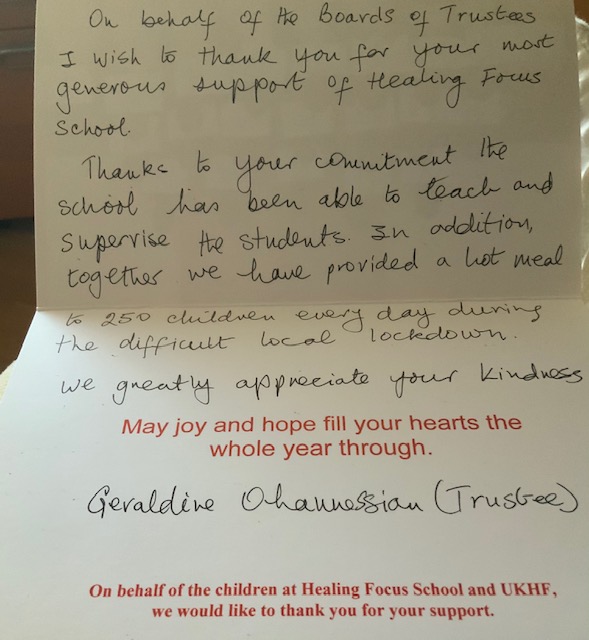 On behalf of the Boards of Trustees
I wish to thank you for your most
generous support of Healing Focus
School.
Thanks to your commitment the
school has been able to teach and
supervise the students. In addition,
together we have provided a hot meal
to 250 children every day during
the difficult local lockdown.
We greatly appreciate your kindness
May joy and hope fill your hearts the
whole year through.
Geraldine Ohannessian (Trustee)
On behalf of the children at Healing Focus School and UKHF,
we would like to thank you for your support.